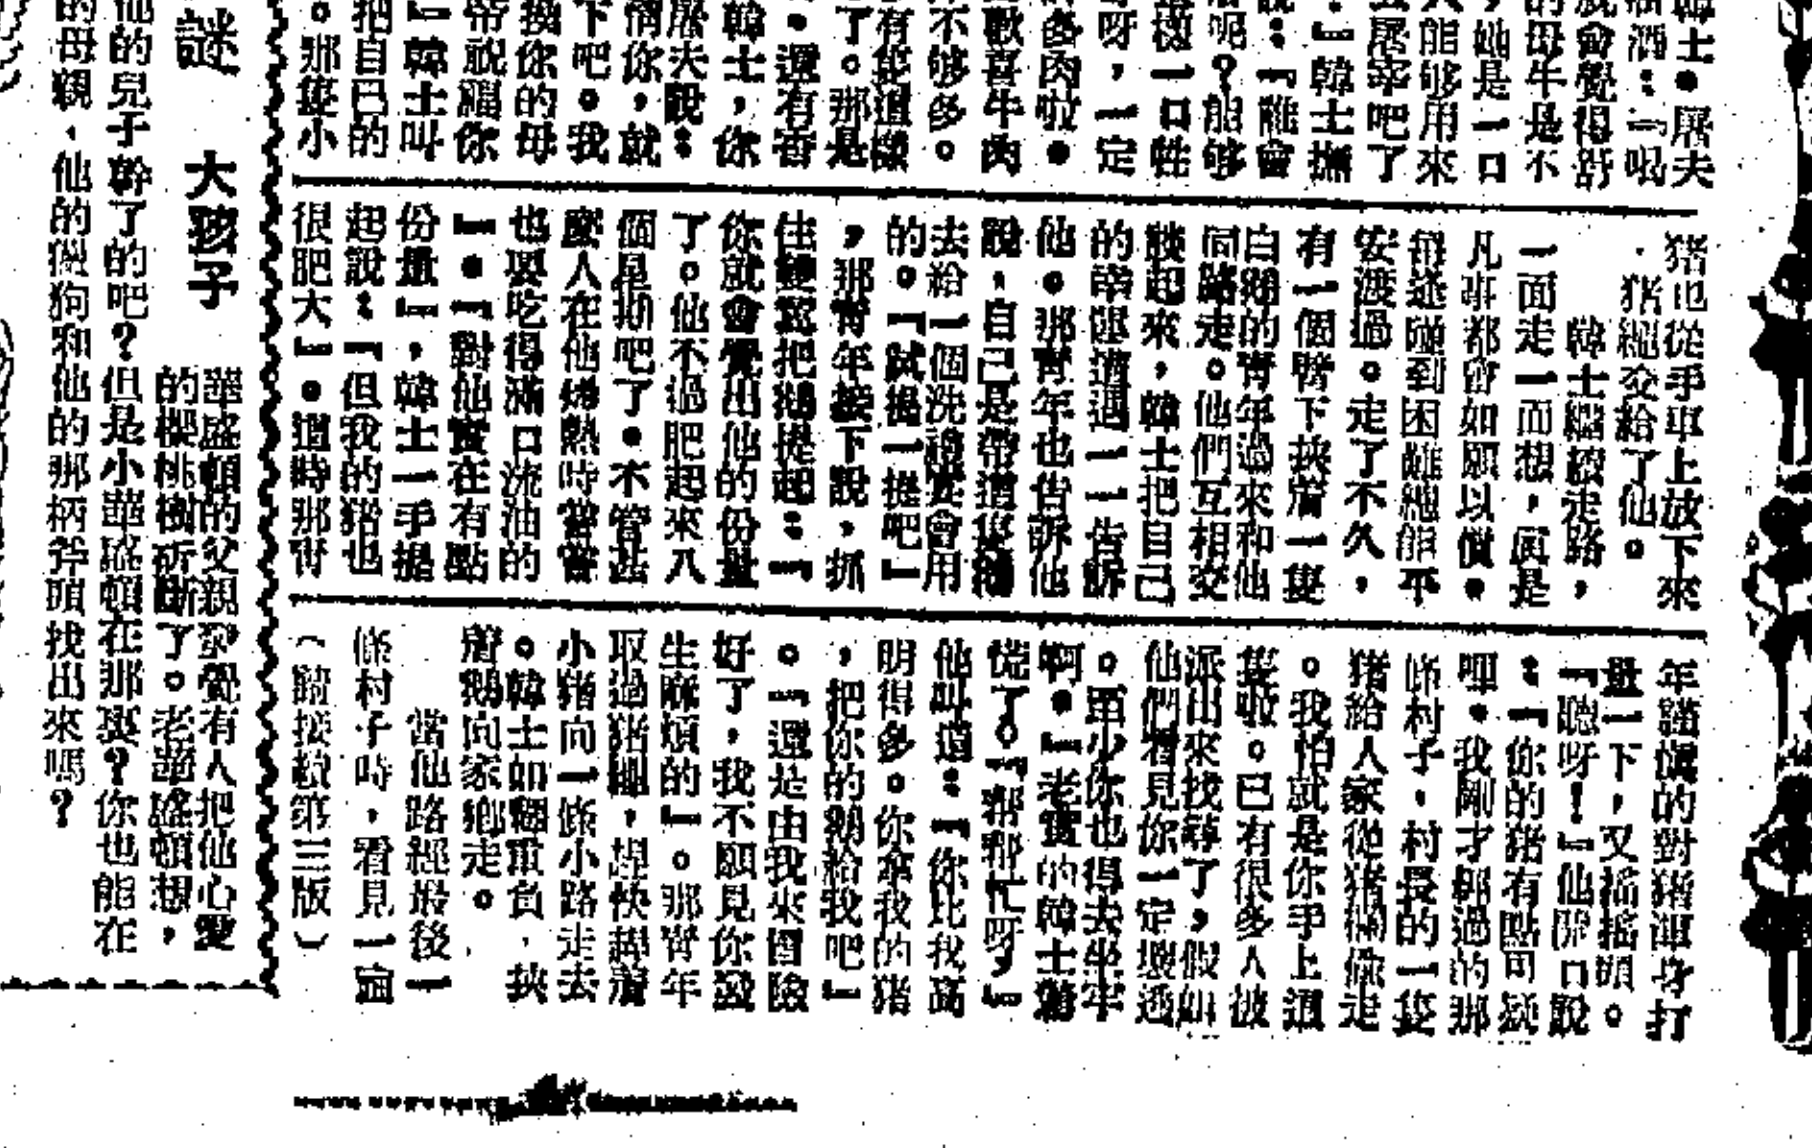 韓士。屠夫
酒：『喝
就會覺得舒
的母牛是不
，她是一口
人能够用來
屠宰吧了
。』韓士撫
說：『誰會
呢？能够
一口牲
呀，一定
多肉啦。
歡喜牛肉
不够多。
有隻這樣
了。那是
。還有香
韓士，你
屠夫說：
情你，就
下吧。我
換你的母
帝祝福你
』韓士叫
把自己的
。那隻小
猪也從手車上放下來
，猪繩交給了他。
韓士繼續走路，
一面走一面想，眞是
凡事都會如願以償。
每逢碰到困難總能平
安渡過。走了不久，
有一個臂下挾着一隻
白鵝的青年過來和他
同路走。他們互相交
談起來，韓士把自己
的幸運遭遇一一告訴
他。那青年也告訴他
說，自己是帶這隻鵝
去給一個洗禮宴會用
的。『試提一提吧』
，那青年接下說，抓
住雙翼把鵝提起：『
你就會覺出他的份量
了。他不過肥起來八
個星期吧了。不管甚
麼人在他烤熟時嘗嘗
也要吃得滿口流油的
』。『對他實在有點
份量』，韓士一手提
起說：『但我的猪也
很肥大』。這時那青
年謹愼的對猪渾身打
量一下，又搖搖頭。
『聽呀！』他開口說
：『你的猪有點可疑
哩。我剛才經過的那
條村子，村長的一隻
猪給人家從猪欄偷走
。我怕就是你手上這
隻啦。已有很多人被
派出來找尋了，假如
他們看見你一定壞透
。至少你也得去坐牢
啊。』老實的韓士着
慌了。『幫幫忙呀，』
他叫道：『你比我高
明得多。你拿我的猪
，把你的鵝給我吧』
。『還是由我來冒險
好了，我不願見你發
生麻煩的』。那青年
取過猪繩，趕快趕着
小猪向一條小路走去
。韓士如釋重負，挾
着鵝向家鄉走。
當他路經最後一
條村子時，看見一個
（轉接續第三版）
謎　大孩子
華盛頓的父親發覺有人把他心愛
的櫻桃樹斫斷了。老華盛頓想，
他的兒子幹了的吧？但是小華盛頓在那裏？你也能在
的母親，他的獵狗和他的那柄斧頭找出來嗎？